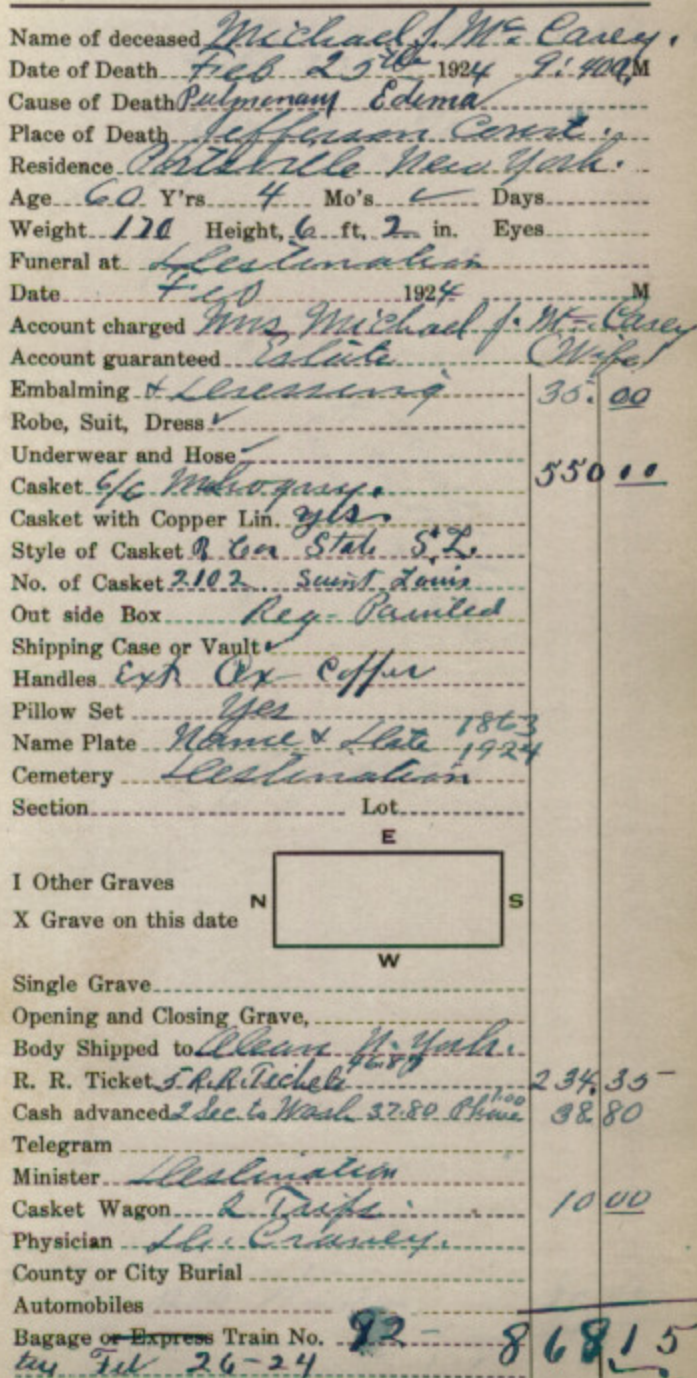 Name of deceased Michael J. Mc Carey.
Date of Death Feb 25th 1924 9:40 A M
Cause of Death Pulmonary Edema
Place of Death Jefferson Court.
Residence Portville New York.
Age 60 Y'rs 4 Mo's ✓ Days
Weight 170 Height, 6 ft, 2 in. Eyes
Funeral at Destination
Date Feb 1924 M
Account charged Mrs Michael J. Mc Carey
Account guaranteed Estate (Wife)
Embalming & Dressing 35.00
Robe, Suit, Dress ✓
Underwear and Hose ✓
Casket 6/6 Mahogany. 550 00
Casket with Copper Lin. yes.
Style of Casket R Cor State S.L.
No. of Casket 2102 Saint Louis
Out side Box Reg - Painted
Shipping Case or Vault ✓
Handles Ext Ox Copper
Pillow Set Yes
Name Plate Name & Date 1863 1924
Cemetery Destination
Section Lot
E
I Other Graves
N S
X Grave on this date
W
Single Grave
Opening and Closing Grave,
Body Shipped to Olean N. York.
R. R. Ticket 5 R.R. Tickets 46.87 234.35
Cash advanced 2 Sec to Wash 37.80 Phone 1.00 38.80
Telegram
Minister Destination
Casket Wagon 2 Trips. 10 00
Physician Dr. Craney.
County or City Burial
Automobiles
Bagage or Express Train No. 92 - 868 15
Feb 26-24